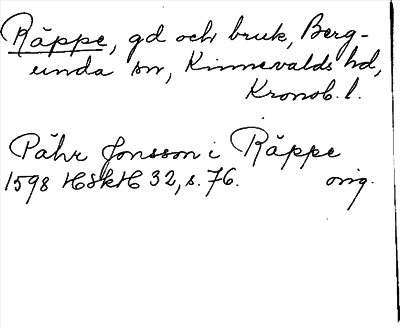 Räppe, gd och bruk, Berg-
unda sn, Kinnevalds hd,
Kronob. l.
Påhr Jonsson i Räppe
1598 HSkH 32, s. 76. orig.